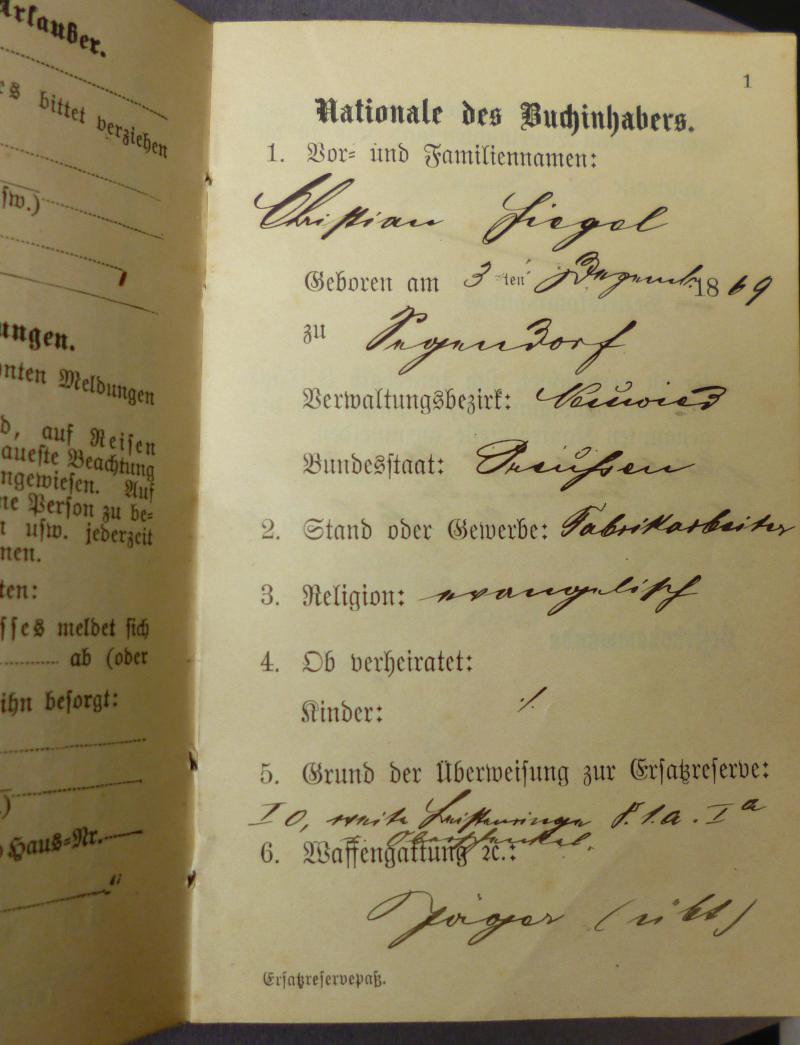 Urlauber.
es bittet verziehen
usw.)
ungen.
nten Meldungen
d, auf Reisen
aueste Beachtung
ngewiesen. Auf
ne Person zu be=
n usw. jederzeit
nen.
ten:
sses meldet sich
ab (oder
ihn besorgt:
)
Haus=Nr.
1
Nationale des Buchinhabers.
1. Vor= und Familiennamen:
Christian Siegel
Geboren am 3ten Dezemb. 1869
zu Segendorf
Verwaltungsbezirk: Neuwied
Bundesstaat: Preußen
2. Stand oder Gewerbe: Fabrikarbeiter
3. Religion: evangelisch
4. Ob verheiratet:
Kinder: ./.
5. Grund der Überweisung zur Ersatzreserve:
I 0, weite Leistenringe 8.1.a. I a
Oberschenkel.
6. Waffengattung ꝛc.:
Jäger (übt)
Ersatzreservepaß.